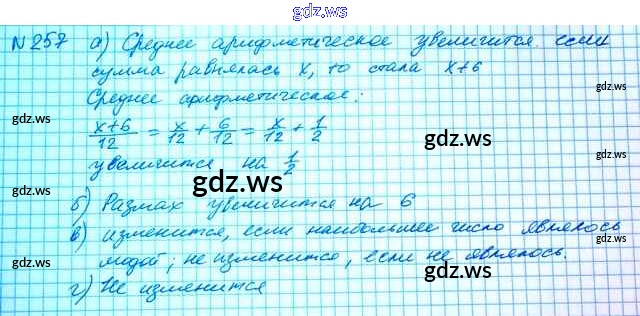 gdz.ws
№257 а) Среднее арифметическое увеличится. если
сумма равнялась x, то стала x+6
gdz.ws
gdz.ws
Среднее арифметическое:
gdz.ws
x+6/12 = x/12 + 6/12 = x/12 + 1/2
увеличится на 1/2
gdz.ws
б) Размах увеличится на 6
в) изменится, если наибольшее число являлось
gdz.ws
модой; не изменится, если не являлось.
gdz.ws
г) Не изменится
gdz.ws
gdz.ws